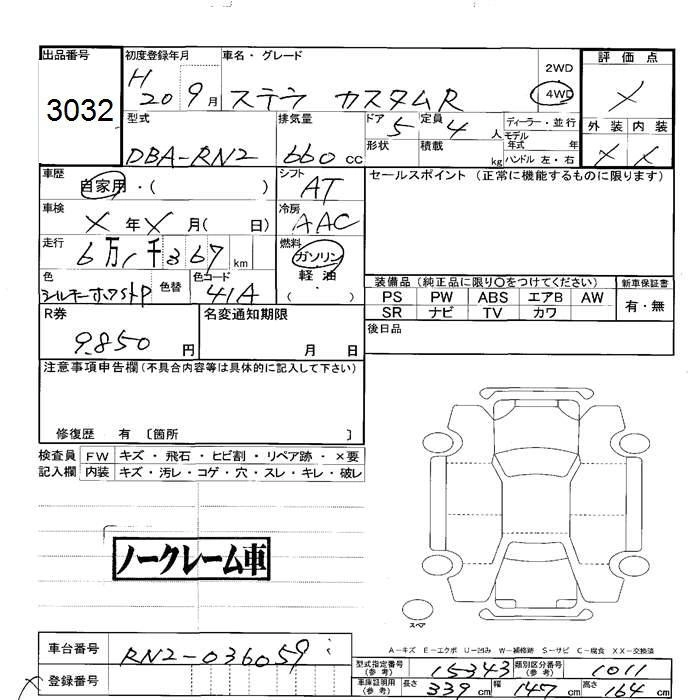 出品番号
3032
初度登録年月
H 20 9月
車名・グレード
ステラ カスタムR
2WD
4WD
評価点
×
外装 内装
× ×
型式
DBA-RN2
排気量
660 cc
ドア
5
定員
4 人
ディーラー・並行
モデル
年式 年
形状
積載
kg
ハンドル 左・右
車歴
自家用・( )
シフト
AT
セールスポイント (正常に機能するものに限ります)
車検
× 年 × 月( 日)
冷房
AAC
走行
6万1千367 km
燃料
ガソリン
軽油
( )
色
色替
色コード
41A
装備品 (純正品に限り○をつけてください)
新車保証書
PS PW ABS エアB AW
SR ナビ TV カワ
有・無
R券
9.850 円
名変通知期限
月 日
後日品
注意事項申告欄(不具合内容等は具体的に記入して下さい)
修復歴 有 〔箇所 〕
検査員
記入欄
FW キズ・飛石・ヒビ割・リペア跡・×要
内装 キズ・汚レ・コゲ・穴・スレ・キレ・破レ
ノークレーム車
スペア
車台番号
RN2-036059
登録番号
A−キズ E−エクボ U−凹み W−補修跡 S−サビ C−腐食 XX−交換済
型式指定番号
(参考)
15343
類別区分番号
(参考)
1011
車庫証明用
(参考)
長さ 339 cm 幅 147 cm 高さ 164 cm